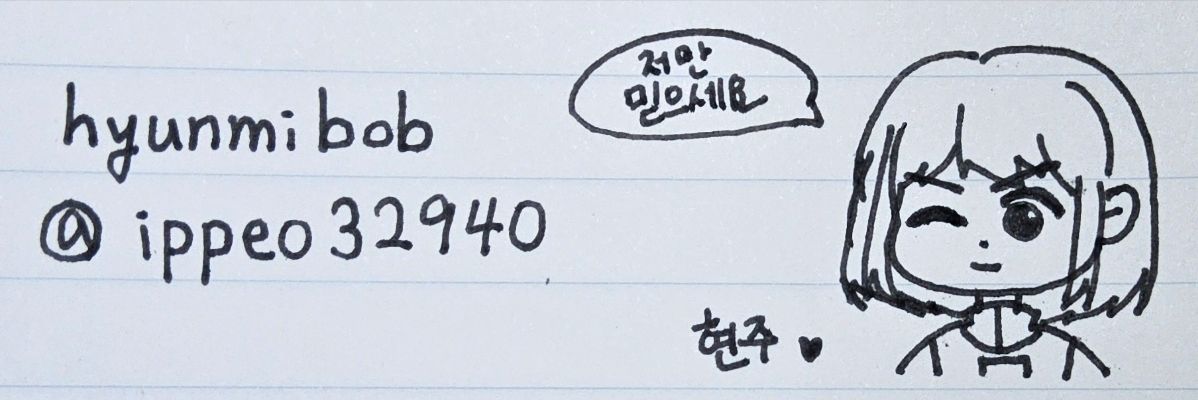 hyunmi bob
@ ippeo32940
저만
믿으세요
현주 ♥